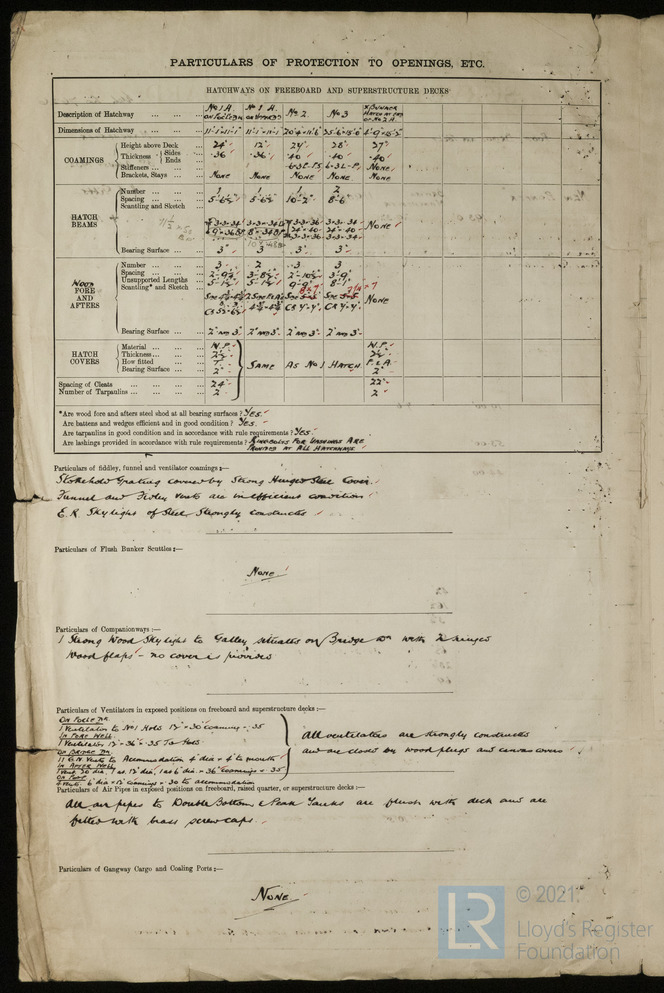 PARTICULARS OF PROTECTION TO OPENINGS, ETC.
HATCHWAYS ON FREEBOARD AND SUPERSTRUCTURE DECKS
Description of Hatchway No 1A. No 1 A. No 2 No 3
Dimensions of Hatchway 11'-1"×11'-1" 11'-1"×11'-1"
COAMINGS
Height above Deck 24" 12" 24" 28" 27"
Thickness Sides .36 .36 .40 .40 .40
Ends
Stiffeners NONE
Brackets, Stays NONE NONE NONE NONE NONE
HATCH BEAMS
Number 1 1 1 2
Spacing 5-6½ 5-6½ 10-2 8-6
Scantling and Sketch NONE
Bearing Surface 3" 3 3" 3"
WOOD FORE AND AFTERS
Number 3 2 3 3
Spacing 3-9
Unsupported Lengths 5-1½ 5-1½ 9-9 8-1
Scantling* and Sketch NONE
Bearing Surface 2" AND 3" 2" AND 3" 2" AND 3" 2" AND 3"
HATCH COVERS
Material W.P. W.P.
Thickness 2½ 2½
How fitted T. F & A
Bearing Surface 2" SAME AS No 1 HATCH. 2"
Spacing of Cleats 24" 22"
Number of Tarpaulins 2 2
*Are wood fore and afters steel shod at all bearing surfaces? YES.
Are battens and wedges efficient and in good condition? YES.
Are tarpaulins in good condition and in accordance with rule requirements? YES.
Are lashings provided in accordance with rule requirements? RINGBOLTS FOR LASHINGS ARE
PROVIDED AT ALL HATCHWAYS.
Particulars of fiddley, funnel and ventilator coamings:—
Stokehold Grating covered by Strong Hinged Steel Cover.
Funnel and Fidley vents are in efficient condition
E.R. Skylight of Steel Strongly constructed
Particulars of Flush Bunker Scuttles:—
NONE
Particulars of Companionways:—
1 Strong Wood Skylight to Galley situated on Bridge Dk with 2 hinged
wood flaps - no cover is provided
Particulars of Ventilators in exposed positions on freeboard and superstructure decks:—
ON FOC'LE DK.
1 Ventilator to No 1 Hold 12" × 30" Coaming × .35
IN FORE WELL.
1 Ventilator 12" × 36" × .35 To Hold
ON BRIDGE DK.
11 G.N. Vents to Accommodation 4" dia × 4' to mouth
IN AFTER WELL
1 Vent 20 dia, 1 at 12" dia, 1 at 6 dia × 36" Coamings × .35
ON POOP
4 Vents 6" dia × 12" Coamings × .30 to accommodation
All ventilators are strongly constructed
and are closed by wood plugs and canvas covers
Particulars of Air Pipes in exposed positions on freeboard, raised quarter, or superstructure decks:—
All air pipes to Double Bottoms & Peak Tanks are flush with deck and are
fitted with brass screw caps.
Particulars of Gangway Cargo and Coaling Ports:—
NONE
LR
© 2021
Lloyd's Register
Foundation